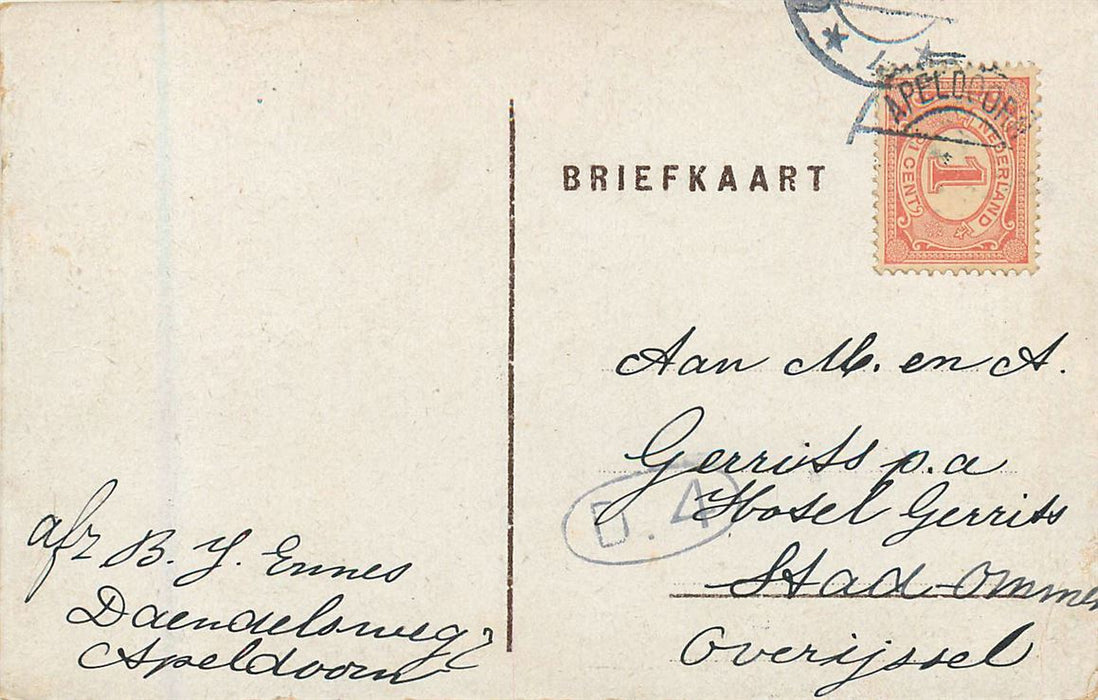 APELDOORN
NEDERLAND
1
1 CENT
BRIEFKAART
Aan M. en A.
Gerrits p.a
Hotel Gerrits
Stad-Ommen
Overijssel
D. 4
afz B. J. Ennes
Daendelsweg
Apeldoorn